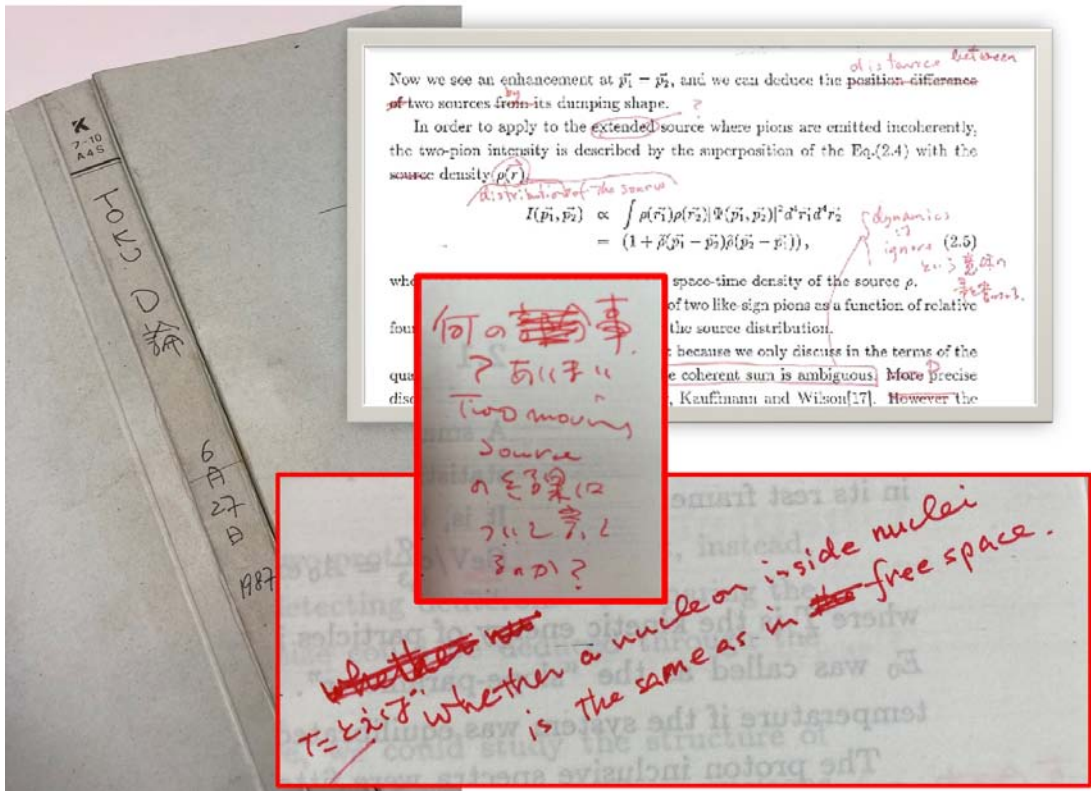 K
7-10
A4S
TOKI D論
6月27日 1987
distance between
Now we see an enhancement at p⃗₁ − p⃗₂, and we can deduce the position difference
by
of two sources from its dumping shape.
?
In order to apply to the extended source where pions are emitted incoherently,
the two-pion intensity is described by the superposition of the Eq.(2.4) with the
source density ρ(r⃗).
distribution of the source
I(p⃗₁, p⃗₂) ∝ ∫ ρ(r⃗₁)ρ(r⃗₂)|Ψ(p⃗₁, p⃗₂)|² d⁴r⃗₁d⁴r⃗₂
= (1 + ρ̃(p⃗₁ − p⃗₂)ρ̃(p⃗₂ − p⃗₁)), (2.5)
dynamics
ignore
という意味の
space-time density of the source ρ.
of two like-sign pions as a function of relative
fou the source distribution.
because we only discuss in the terms of the
qua e coherent sum is ambiguous. More precise
disc , Kauffmann and Wilson[17]. However the
何の 事
? あいまい
Two moving
source
の
について言って
るのか?
たとえば whether a nucleon inside nuclei
is the same as in the free space.
in its rest frame
It is,
GeV/c
, instead
where T is the kinetic energy of particles.
E₀ was called
temperature if the system was equi
could study the structure of
The proton inclusive spectra were